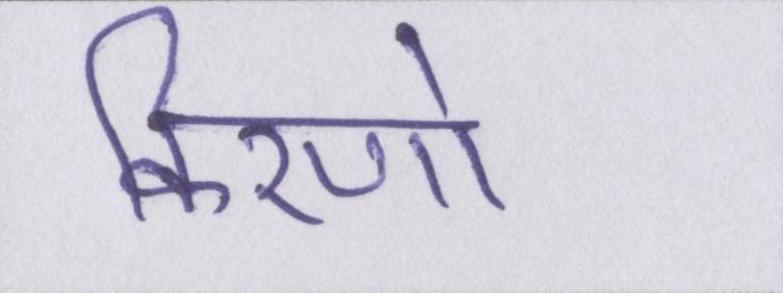 किरणो